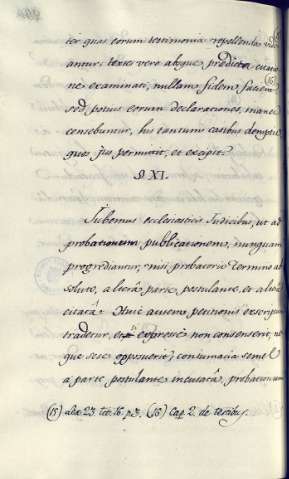 ter quas eorum testimonia repellenda vide
antur: testes vero absque predicta citatio
ne examinati, nullam fidem faciem
sed potius eorum declarationes, manci
censebuntur, his tantum casibus demptis
quos Jus permittit, et excipit.
§ XI.
Jubemus ecclesiasticis Judicibus, ut ad
probationum publicationem, nunquam
progrediantur, nisi probatorio termino ab
soluto, altera parte postulante, et alia
citata. Huic autem petitionis exemplum
tradetur, et expresse non consenserit, ne
que sese opposuerit, contumacia semel
a parte postulante incusata, probationum
(15) alex 23. tit. 16. p 3. (16) Cap. 2. de testibus.